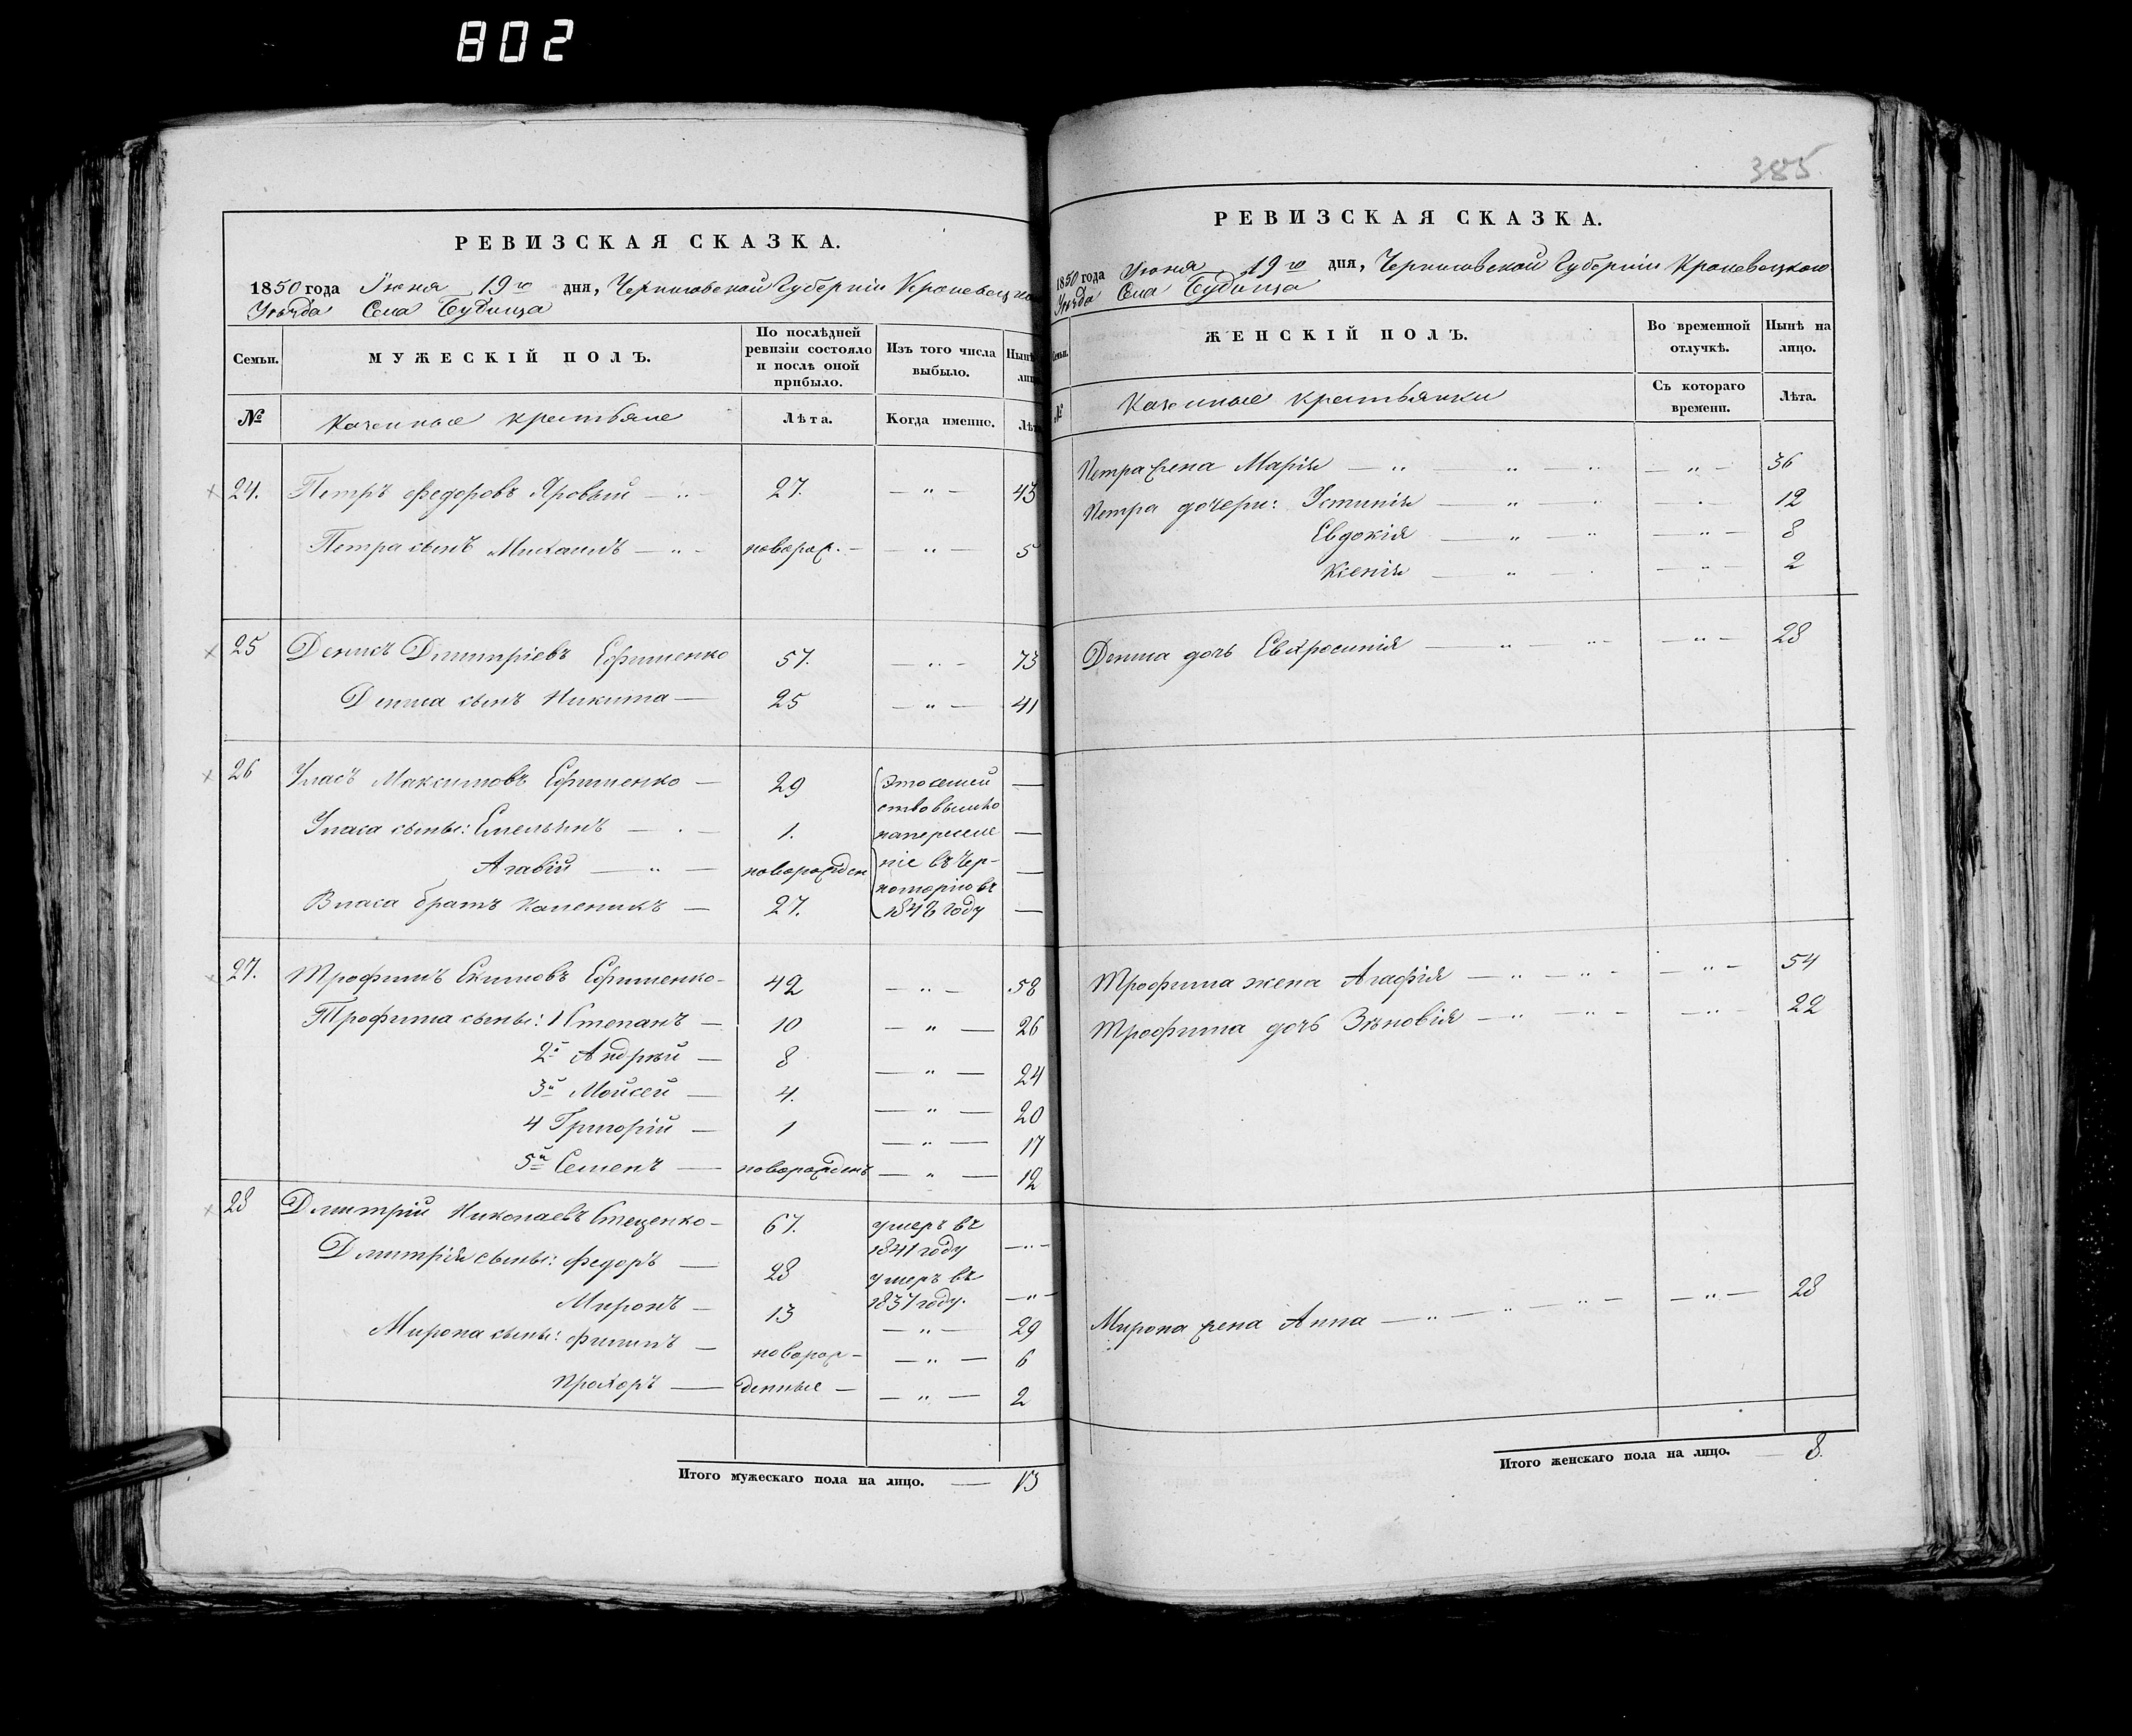 802
РЕВИЗСКАЯ СКАЗКА.
1850 года Іюня 19го дня, Черниговской Губерніи Кролевецкаго
Уѣзда Села Будища
Семьи. МУЖЕСКІЙ ПОЛЪ. По послѣдней ревизіи состояло и послѣ оной прибыло. Изъ того числа выбыло. Нынѣ на лицо.
№ Казенные крестьяне Лѣта. Когда именно. Лѣта.
24. Петръ Федоровъ Яровый — " — 27. — " — 43
Петра сынъ Михаилъ — " — новорож. — — " — 5
25 Денисъ Дмитріевъ Ефименко 57. — " — 73
Дениса сынъ Никита — 25 — " — 41
26 Уласъ Максимовъ Ефименко — 29 Это семей —
ство вышло
Уласа сыны: Емельянъ — 1. на переселе —
Агавій — " — новорожден ніе въ Чер- —
номорію въ
Власа братъ Каленикъ — 27. 1848 году —
27. Трофимъ Екимовъ Ефименко — 42 — " — 58
Трофима сыны: 1 Степанъ — 10 — " — 26
2й Андрѣй — 8 — " — 24
3й Мойсей — 4. — " — 20
4 Григорій — 1 — " — 17
5й Семенъ — новорожденъ — " — 12
28 Дмитрій Николаевъ Стеценко — 67. умеръ въ
1841 году — " —
Дмитрія сыны: Федоръ — 28 умеръ въ
1837 году. — " —
Миронъ — 13 — " — 29
Мирона сыны: Филипъ — новорож- — " — 6
Прохоръ — денные — — " — 2
Итого мужескаго пола на лицо. — 13
385.
РЕВИЗСКАЯ СКАЗКА.
1850 года Іюня 19го дня, Черниговской Губерніи Кролевецкаго
Уѣзда Села Будища
Семьи. ЖЕНСКІЙ ПОЛЪ. Во временной отлучкѣ. Нынѣ на лицо.
№ Казенные крестьянки Съ котораго времени. Лѣта.
Петра жена Марія — " — " — " — " — 36
Петра дочери: Устинія — " — " — " — 12
Евдокія — " — " — " — 8
Ксенія — " — " — 2
Дениса дочь Евфросинія — " — " — — " — 28
Трофима жена Агафія — " — " — — " — 54
Трофима дочь Зѣновія — " — " — — " — 22
Мирона жена Анна — " — " — " — — " — 28
Итого женскаго пола на лицо. — 8.